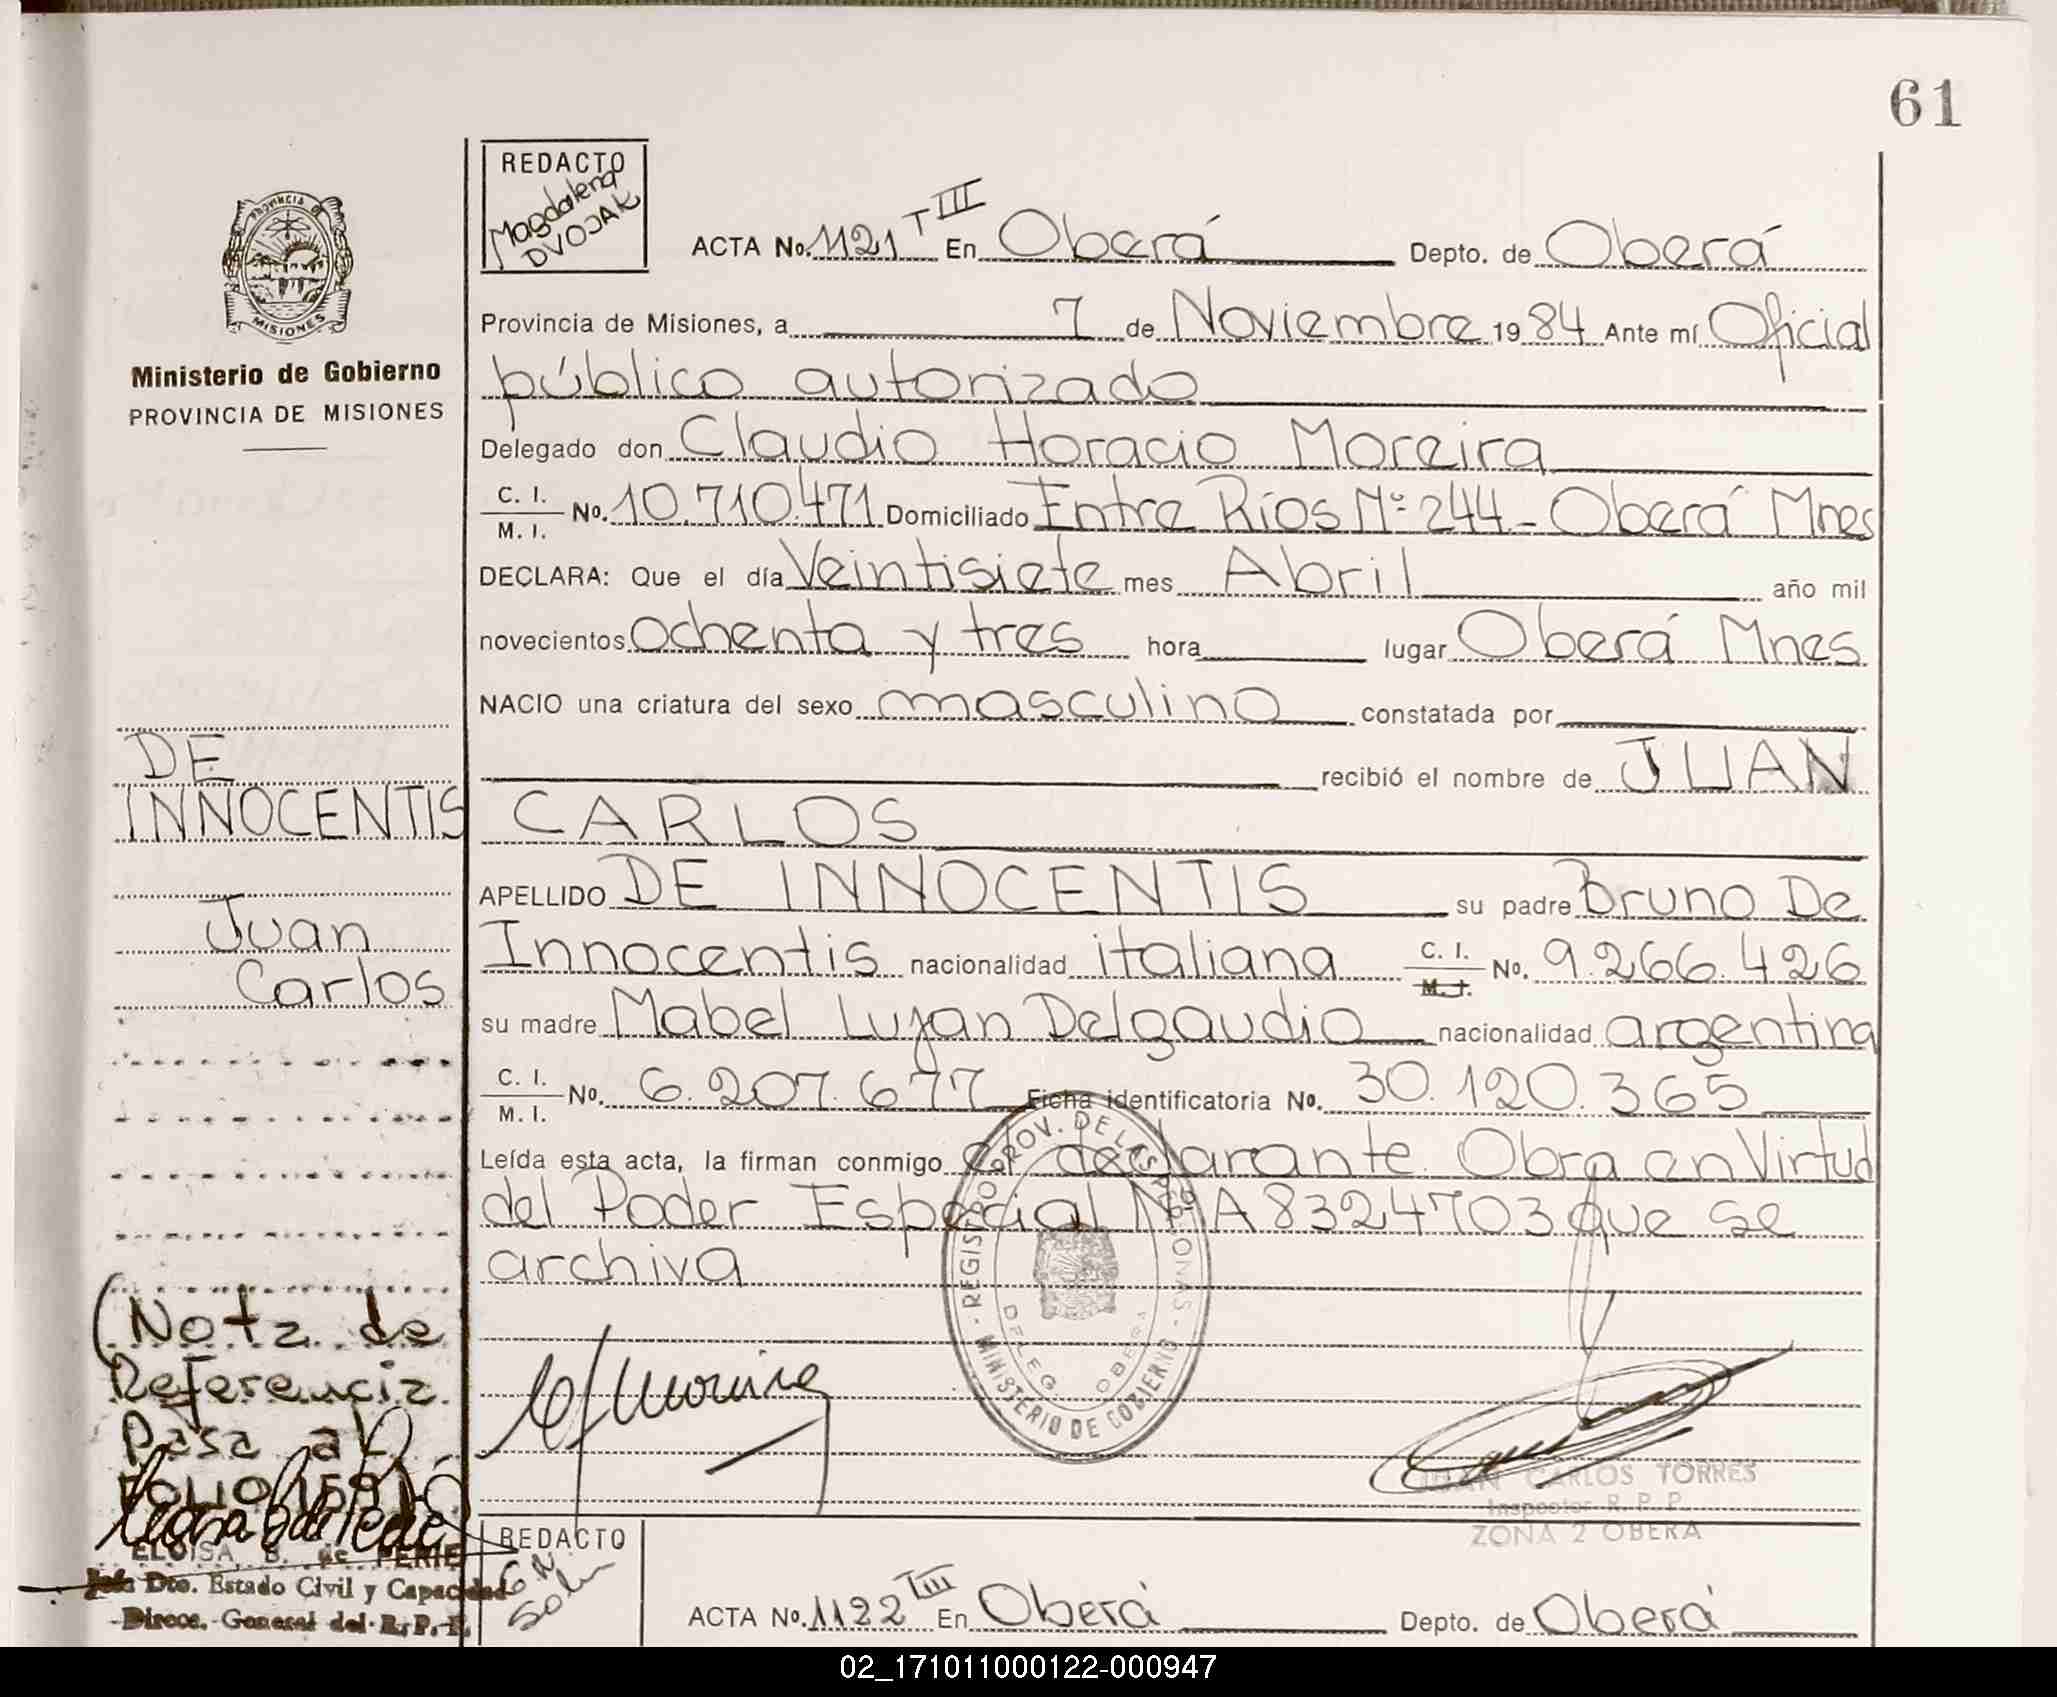 61
PROVINCIA DE
MISIONES
Ministerio de Gobierno
PROVINCIA DE MISIONES
REDACTO
Magdalena
DVOJAK
ACTA No. 1121 T III En Oberá Depto. de Oberá
Provincia de Misiones, a 7 de Noviembre 1984 Ante mí Oficial
público autorizado
Delegado don Claudio Horacio Moreira
C. I. / M. I. No. 10.710.471 Domiciliado Entre Ríos Nº 244 - Oberá Mnes
DECLARA: Que el día Veintisiete mes Abril año mil
novecientos ochenta y tres hora lugar Oberá Mnes
NACIO una criatura del sexo masculino constatada por
recibió el nombre de JUAN
CARLOS
APELLIDO DE INNOCENTIS su padre Bruno De
Innocentis nacionalidad italiana C. I. / M. I. No. 9.266.426
su madre Mabel Lujan Delgaudio nacionalidad argentina
C. I. / M. I. No. 6.207.677 Ficha identificatoria No. 30.120.365
Leída esta acta, la firman conmigo el declarante. Obra en Virtud
del Poder Especial Nº A 8324703 que se
archiva
DE
INNOCENTIS
Juan
Carlos
(Nota de
Referencia
Pasa al
FOLIO
ELOISA B. de PERIE
Jefa Dto. Estado Civil y Capacidad
Direcc. General del R. P. P.
REGISTRO PROV. DE LAS PERSONAS
MINISTERIO DE GOBIERNO
DELEG. OBERA
JUAN CARLOS TORRES
Inspector R. P. P.
ZONA 2 OBERA
REDACTO
ACTA No. 1122 T III En Oberá Depto. de Oberá
02_171011000122-000947